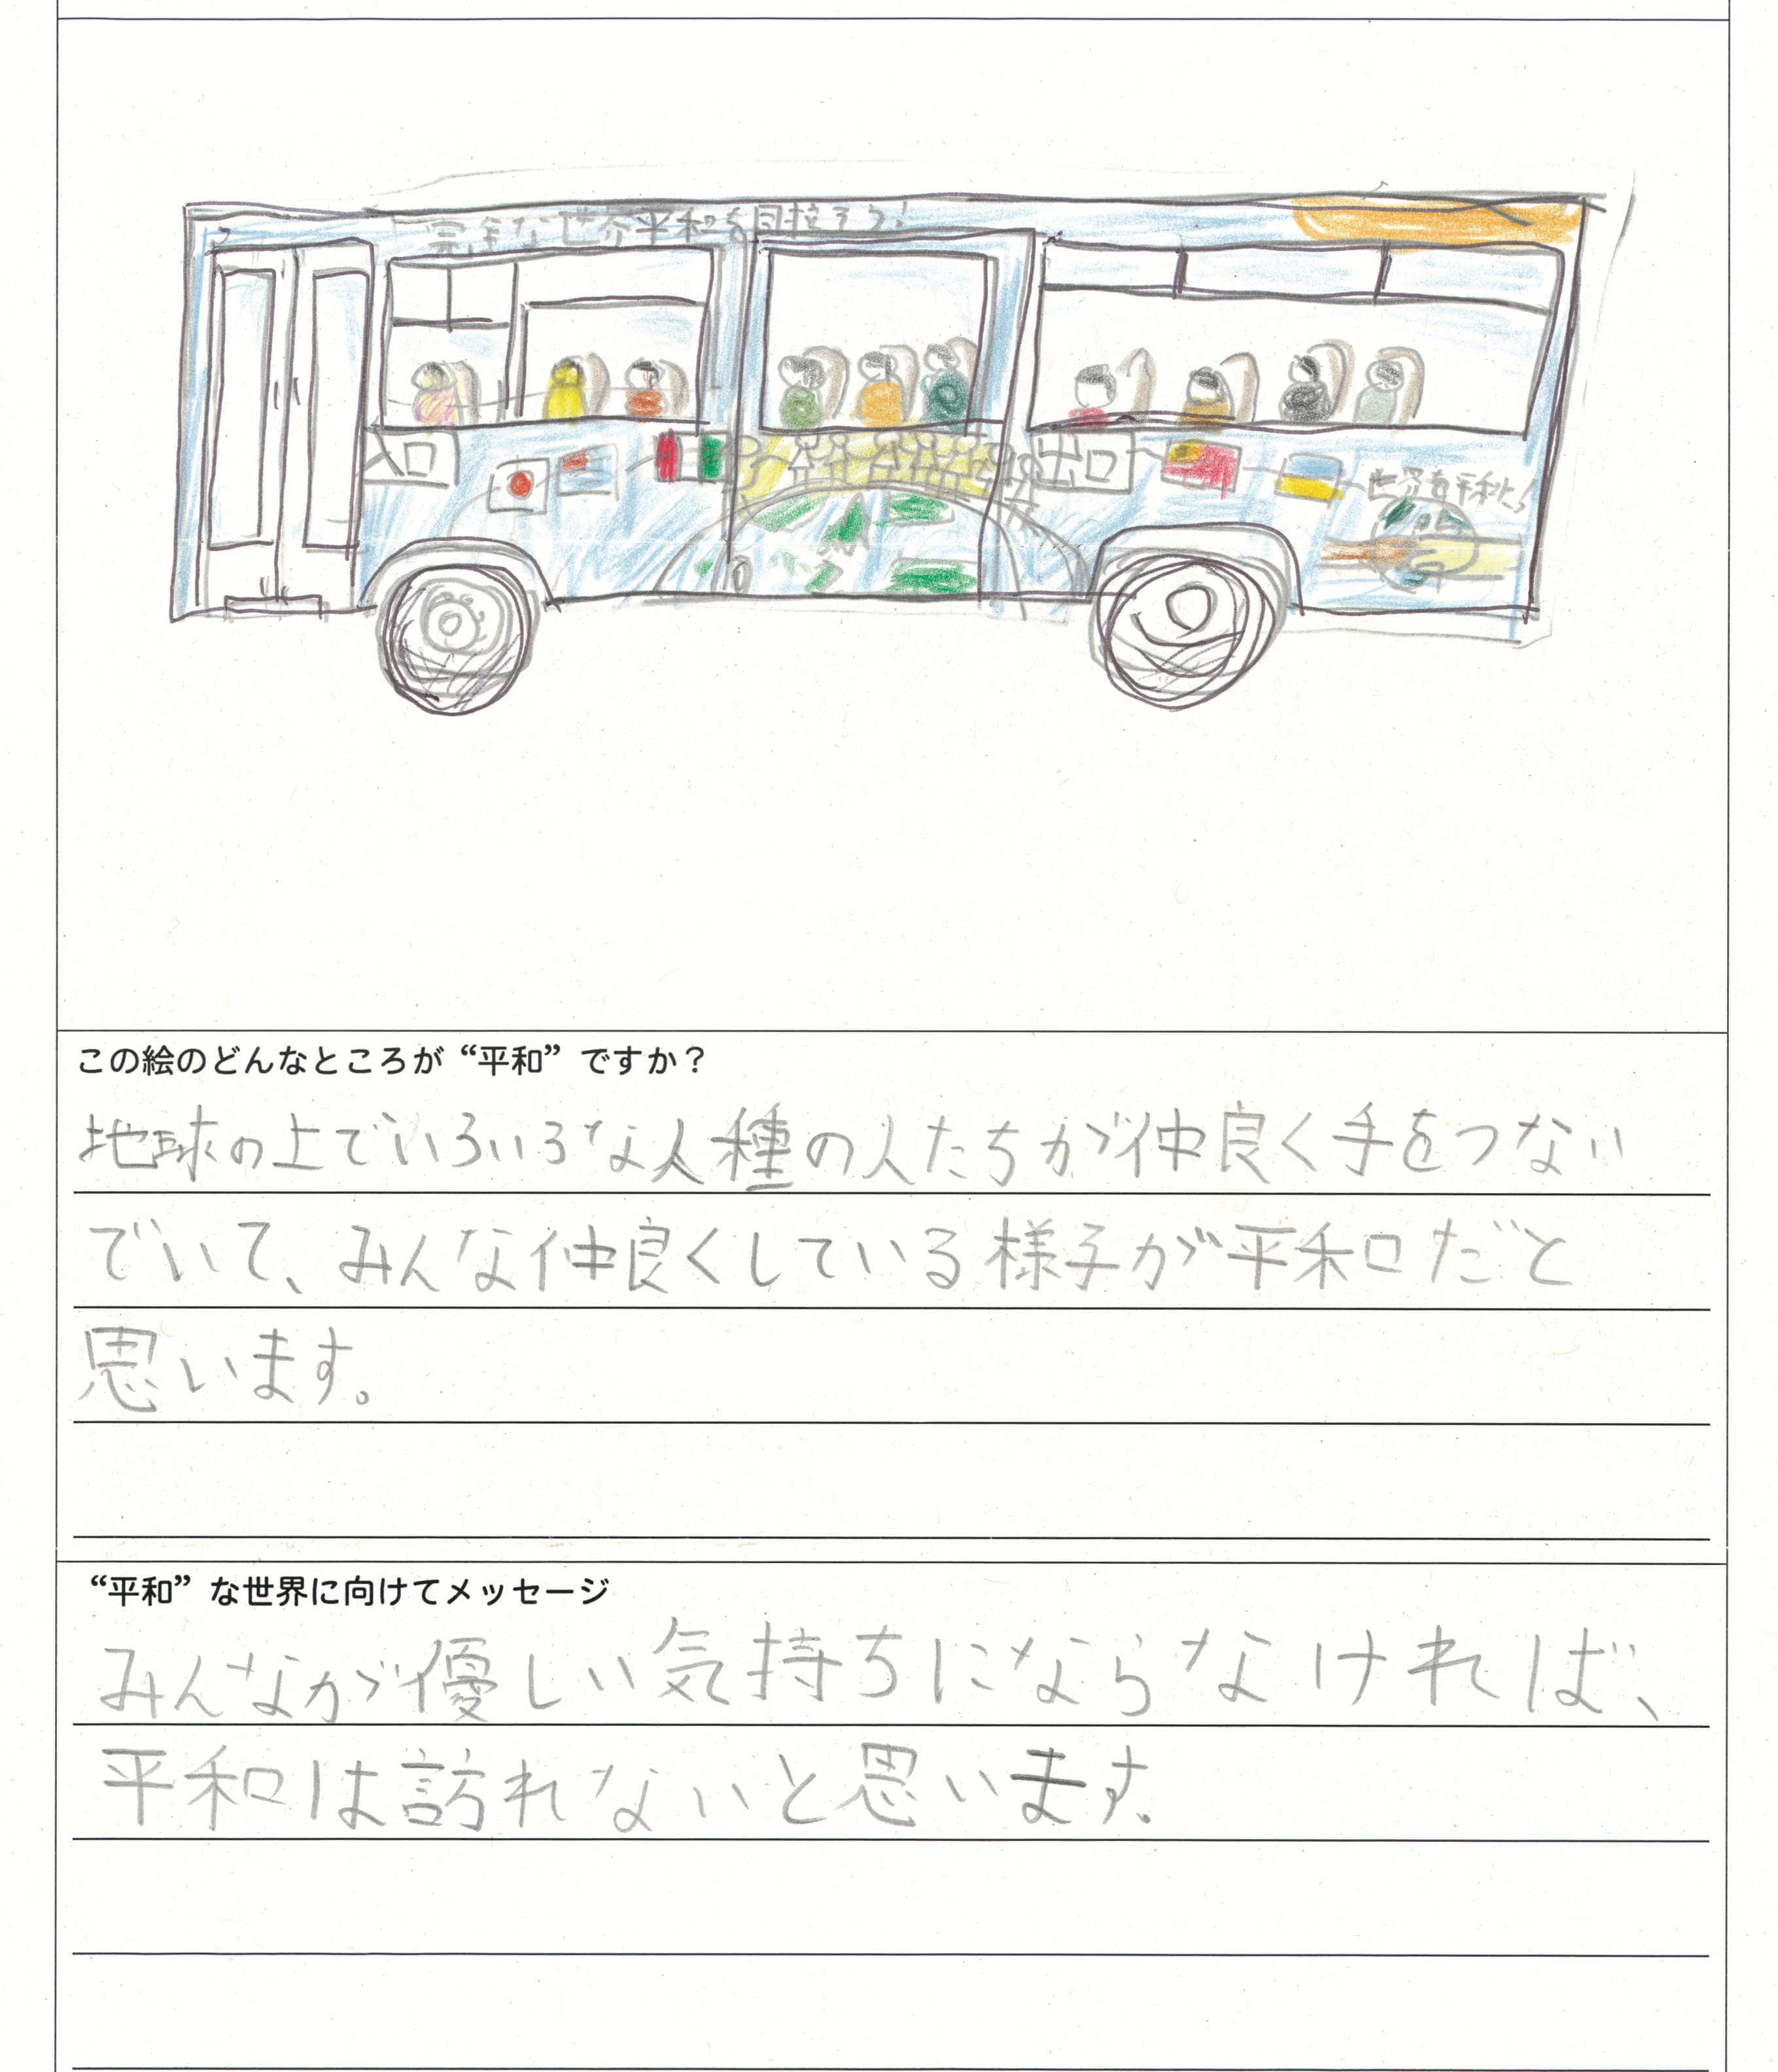 完全な世界平和を目指そう!
入口
出口
世界を平和に!
この絵のどんなところが“平和”ですか?
地球の上でいろいろな人種の人たちが仲良く手をつない
でいて、みんな仲良くしている様子が平和だと
思います。
“平和”な世界に向けてメッセージ
みんなが優しい気持ちにならなければ、
平和は訪れないと思います。